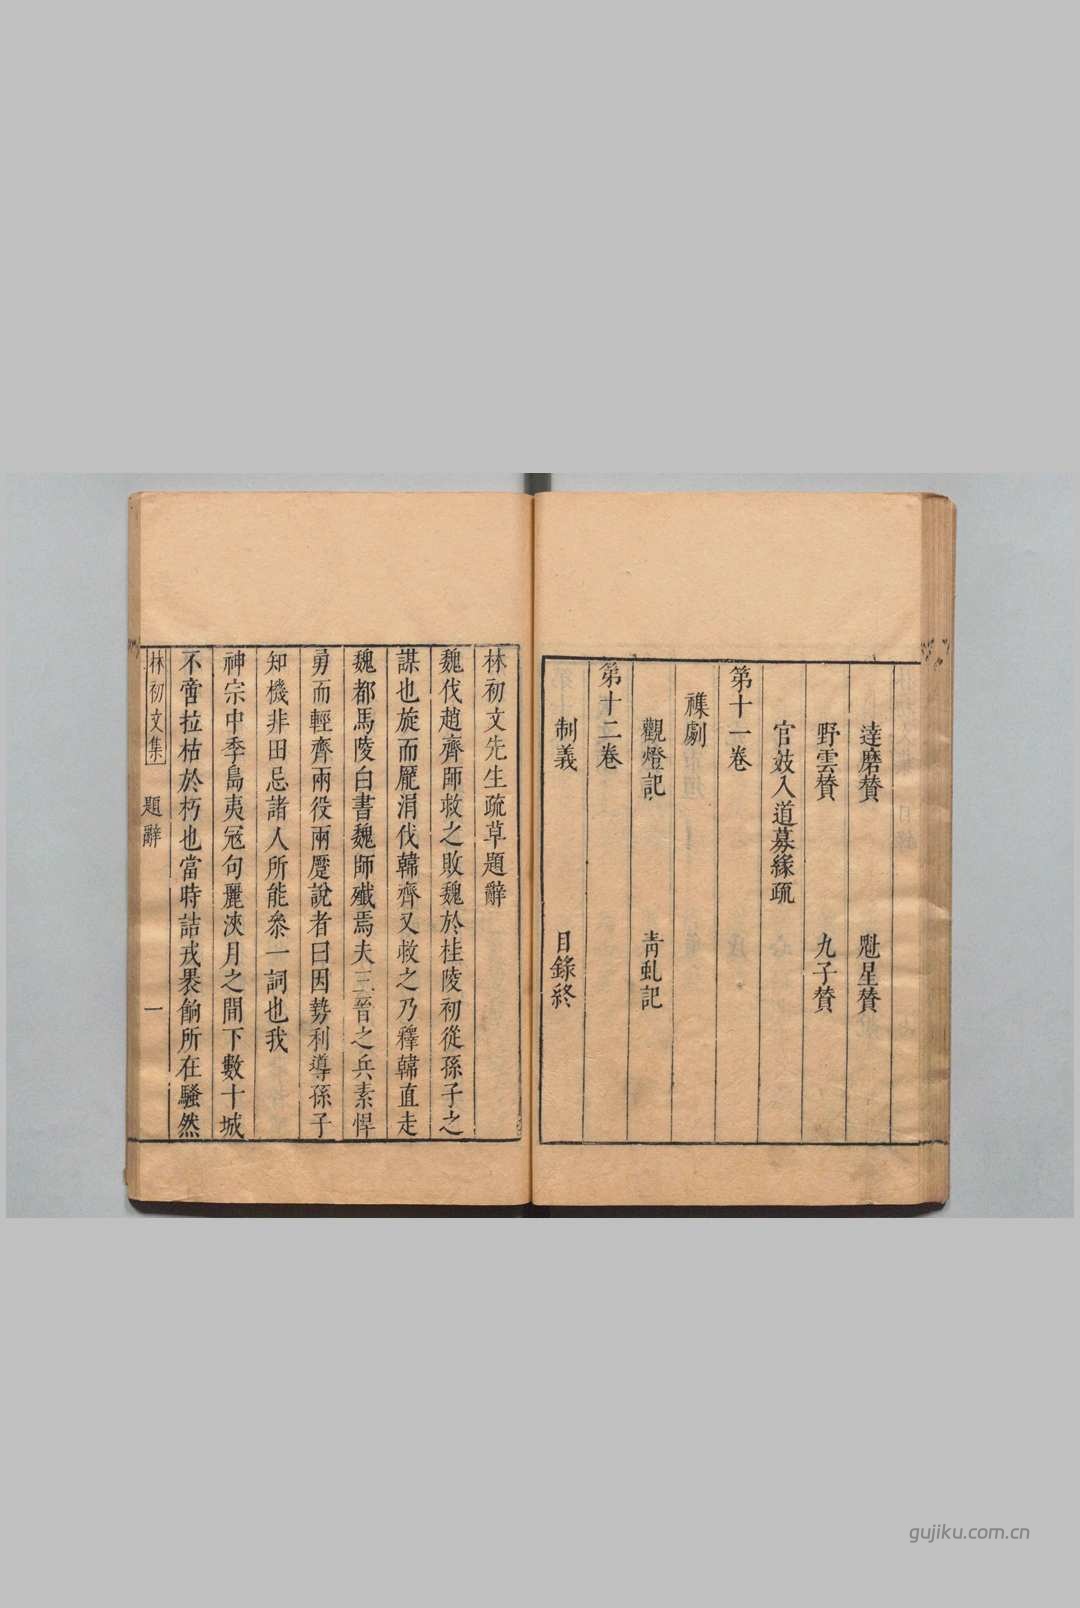 達磨贊 魁星贊
野雲贊 九子贊
官妓入道募緣疏
第十一卷
襍劇
觀燈記 青虬記
第十二卷
制義 目錄終
林初文先生疏草題辭
魏伐趙齊師救之敗魏於桂陵初從孫子之
謀也旋而龎涓伐韓齊又救之乃釋韓直走
魏都馬陵白書魏師殲焉夫三晉之兵素悍
勇而輕齊兩役兩蹷說者曰因勢利導孫子
知機非田忌諸人所能叅一詞也我
神宗中季島夷寇句麗浹月之間下數十城
不啻拉枯於朽也當時詰戎褁餉所在騷然
林初文集 題辭 一
gujiku.com.cn